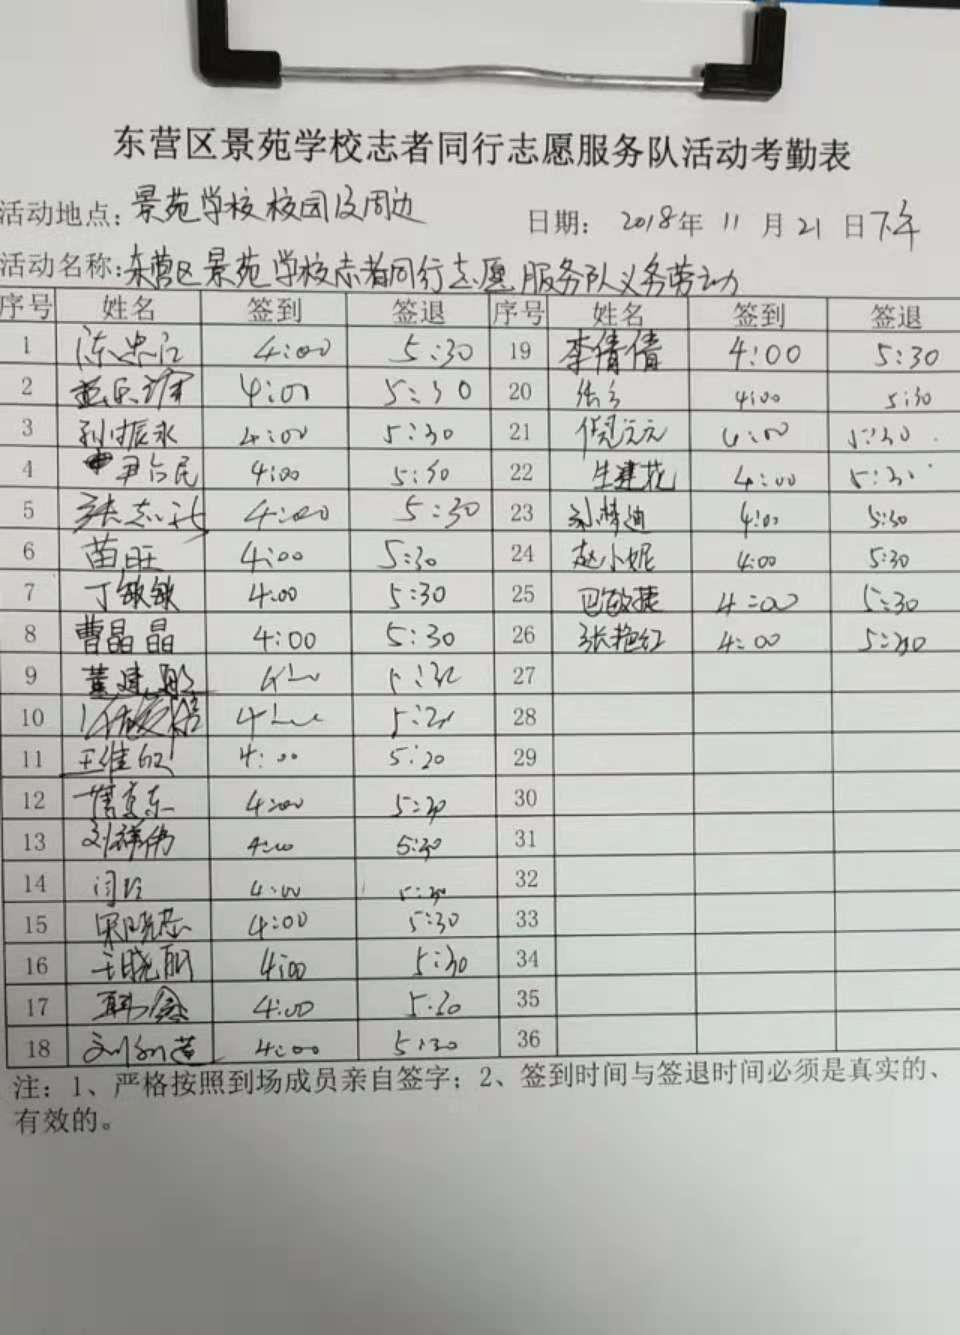 东营区景苑学校志者同行志愿服务队活动考勤表
活动地点：景苑学校校园及周边 日期： 2018年 11 月 21 日下午
活动名称：东营区景苑学校志者同行志愿服务队义务劳动
序号 姓名 签到 签退 序号 姓名 签到 签退
1 陈忠江 4:00 5:30 19 李倩倩 4:00 5:30
2 4:00 5:30 20 4:00 5:30
3 孙振永 4:00 5:30 21 4:00 5:30
4 尹台民 4:00 5:30 22 生建花 4:00 5:30
5 张志 4:00 5:30 23 孙梦迪 4:00 5:30
6 苗旺 4:00 5:30 24 赵小妮 4:00 5:30
7 丁敏敏 4:00 5:30 25 巴敏捷 4:00 5:30
8 曹晶晶 4:00 5:30 26 张艳红 4:00 5:30
9 董建 5:30 27
10 28
11 王维 4:00 5:30 29
12 4:00 5:30 30
13 刘祥伟 4:00 5:30 31
14 闫 4:00 5:30 32
15 宋晓 4:00 5:30 33
16 王晓丽 4:00 5:30 34
17 韩鑫 4:00 5:30 35
18 刘 4:00 5:30 36
注：1、严格按照到场成员亲自签字；2、签到时间与签退时间必须是真实的、
有效的。